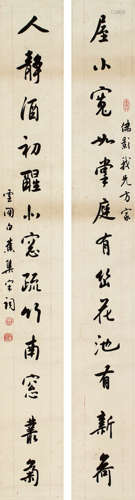 屋小寬如掌庭有幽花池有新荷
佛影我兄方家
人靜酒初醒北窗疏竹南窗叢菊
雲間白蕉集宋詞